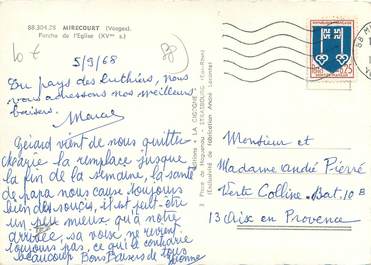 88.304.25 MIRECOURT (Vosges)
Porche de l'Eglise (XVme s.)
5/9/68
Du pays des Luthiers, nous
vous adressons nos meilleurs
baisers.
Marcel
Gérard vient de nous quitter
la remplace jusque
la fin de la semaine, la santé
de papa nous cause toujours
bien des soucis, il est peut-être
un peu mieux qu'à notre
arrivée, sa voix ne revient
toujours pas, ce qui le contrarie
beaucoup Bons Baisers de tous
Yvonne
Editions "LA CIGOGNE"
Place de Haguenau - STRASBOURG
88 MI
REPUBLIQUE FRANÇAISE
0,25
Monsieur et
Madame André Pierré
Verte Colline. Bat. 10 B
13 Aix en Provence